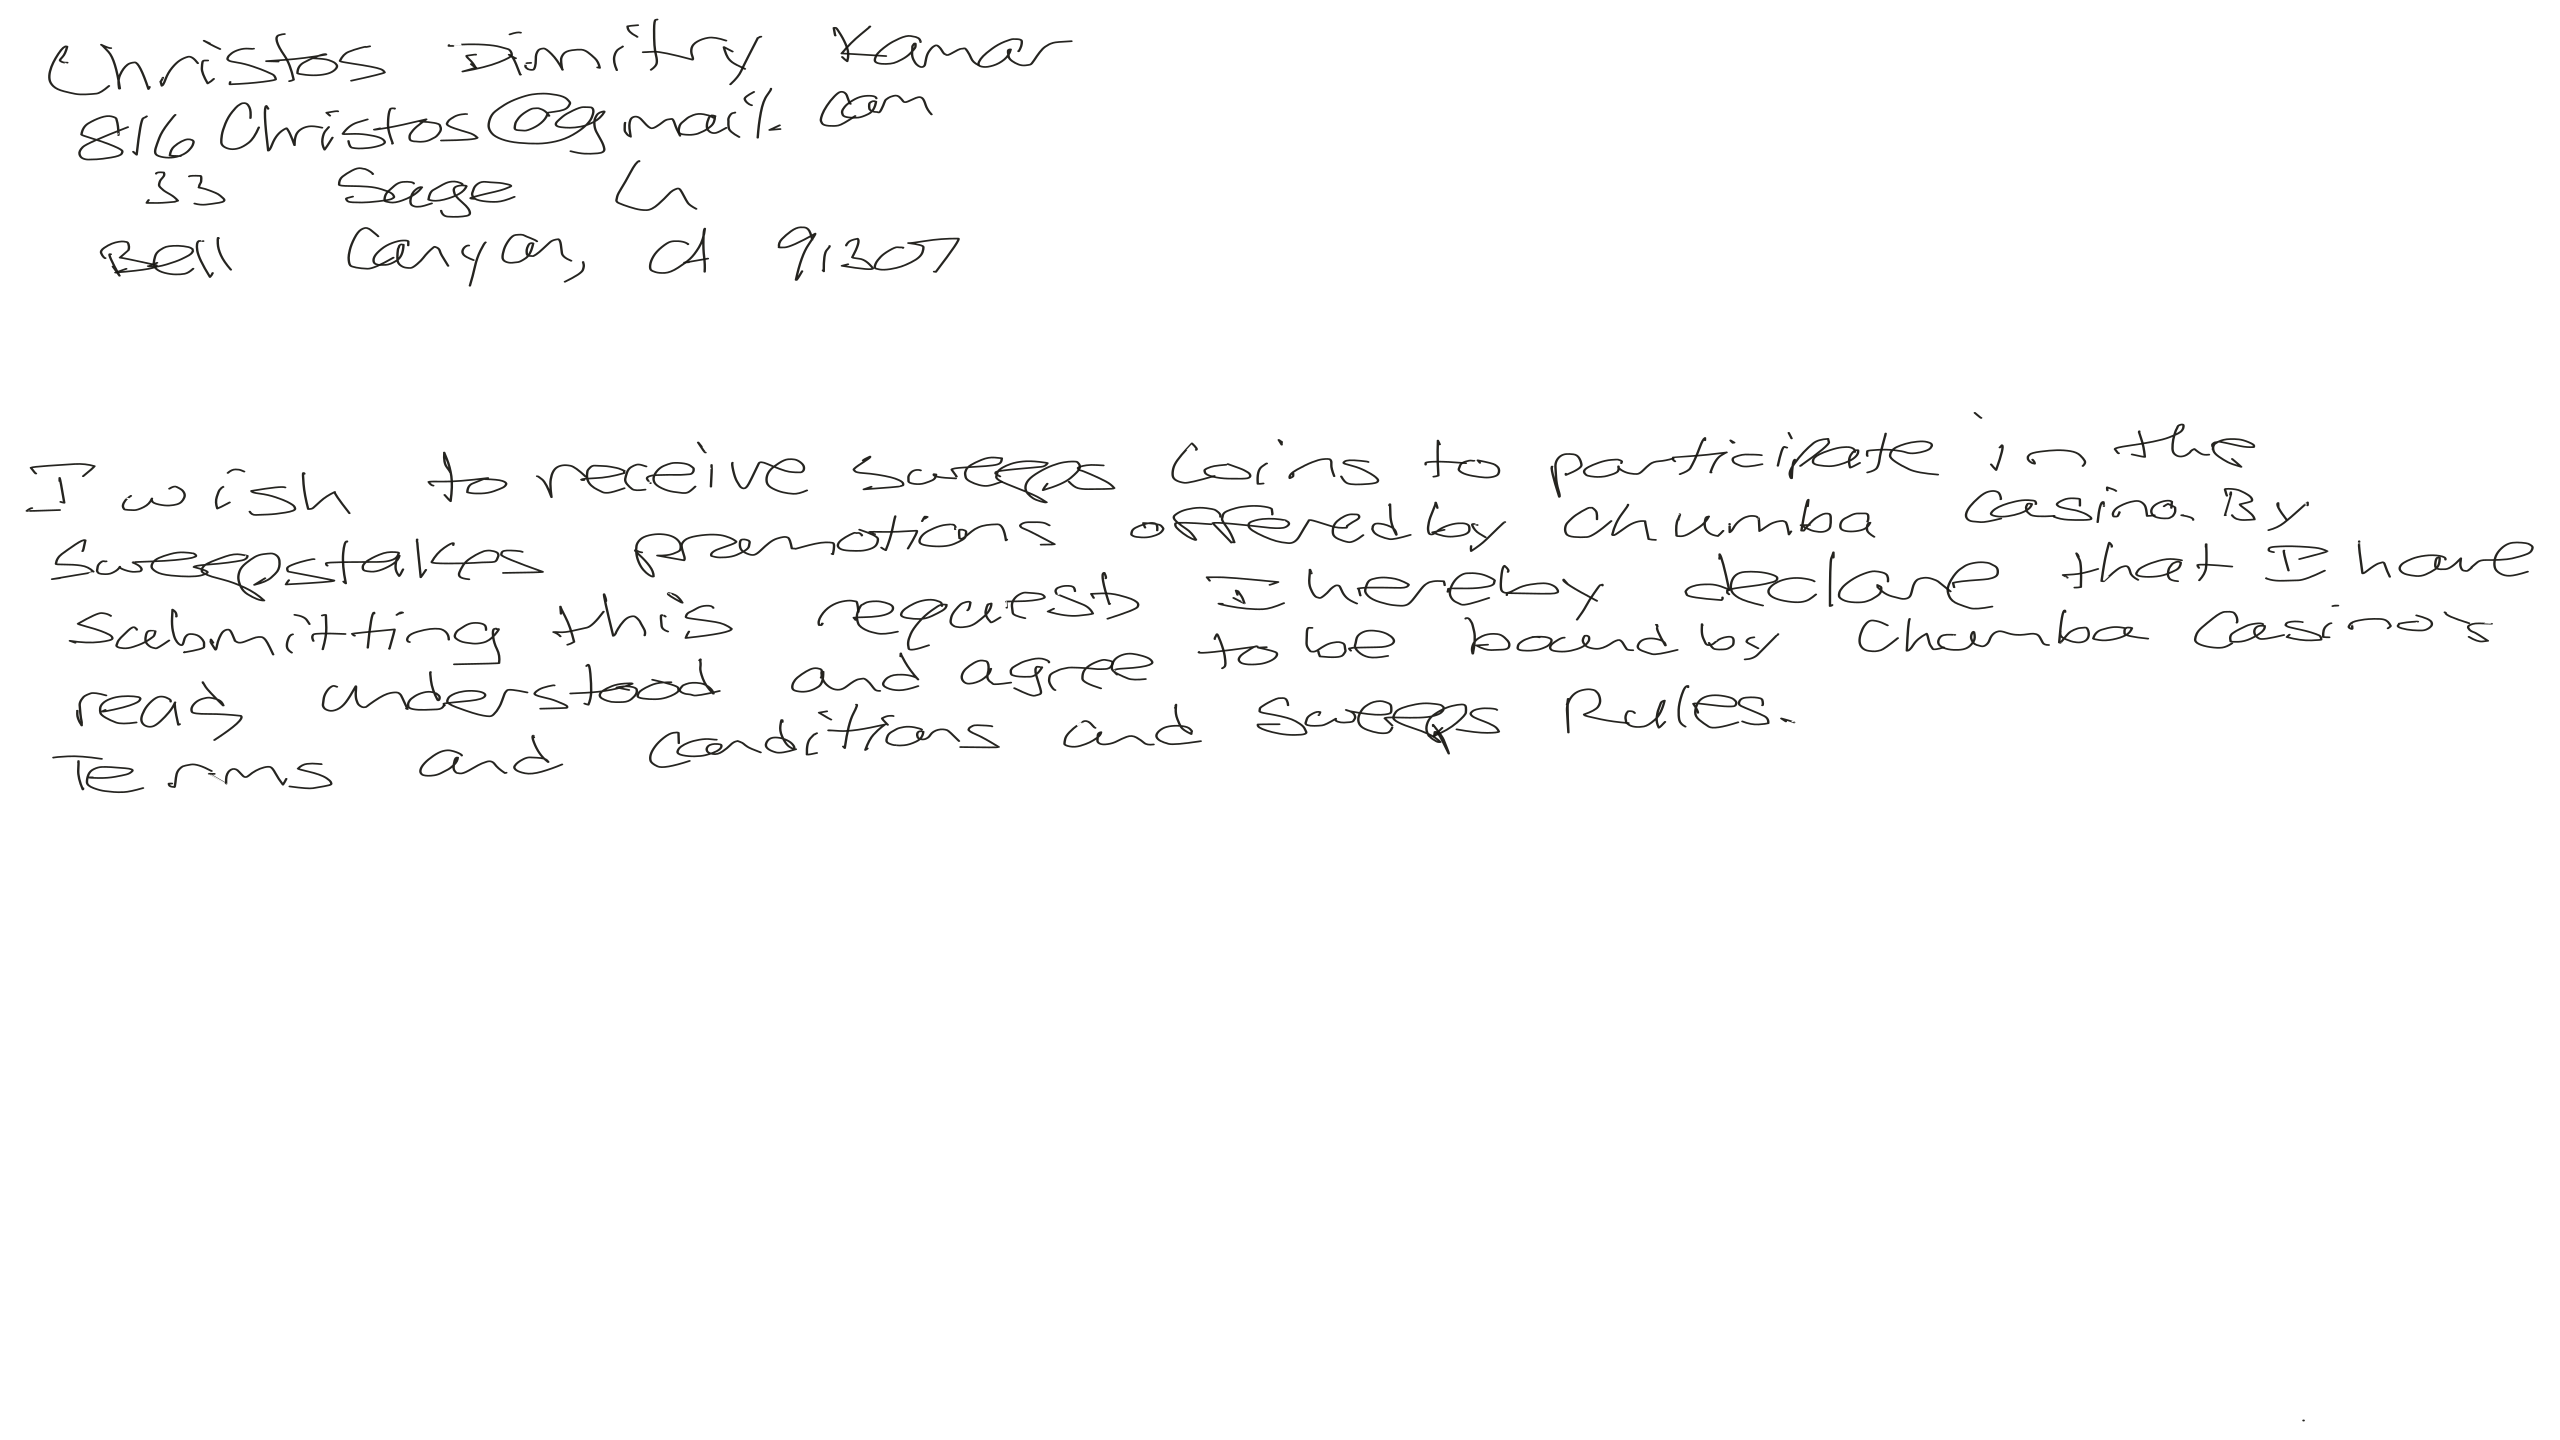 Christos Dimitry Kamar
816Christos@gmail.com
33 Sage Ln
Bell Canyon, CA 91307
I wish to receive sweeps Coins to participate in the
sweepstakes promotions offered by Chumba Casino. By
submitting this request I hereby declare that I have
read, understood and agree to be bound by Chumba Casino's
Terms and Conditions and Sweeps Rules.